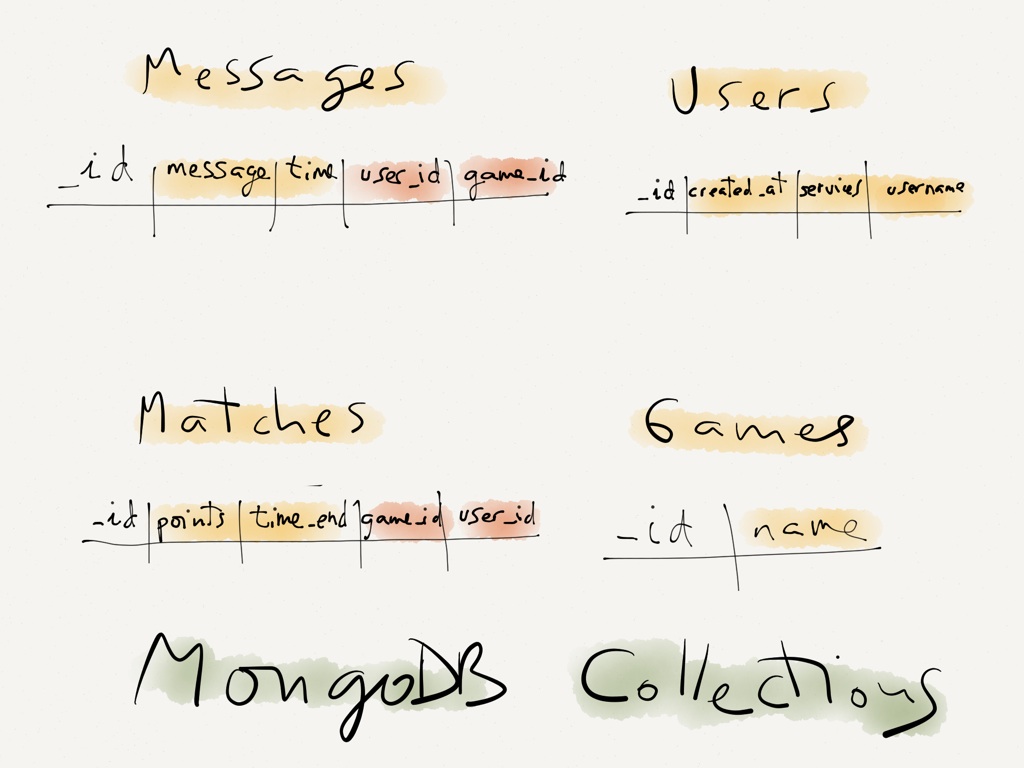 Messages
_id message time user_id game_id
Users
_id created_at services username
Matches
_id points time_end game_id user_id
Games
_id name
MongoDB Collections